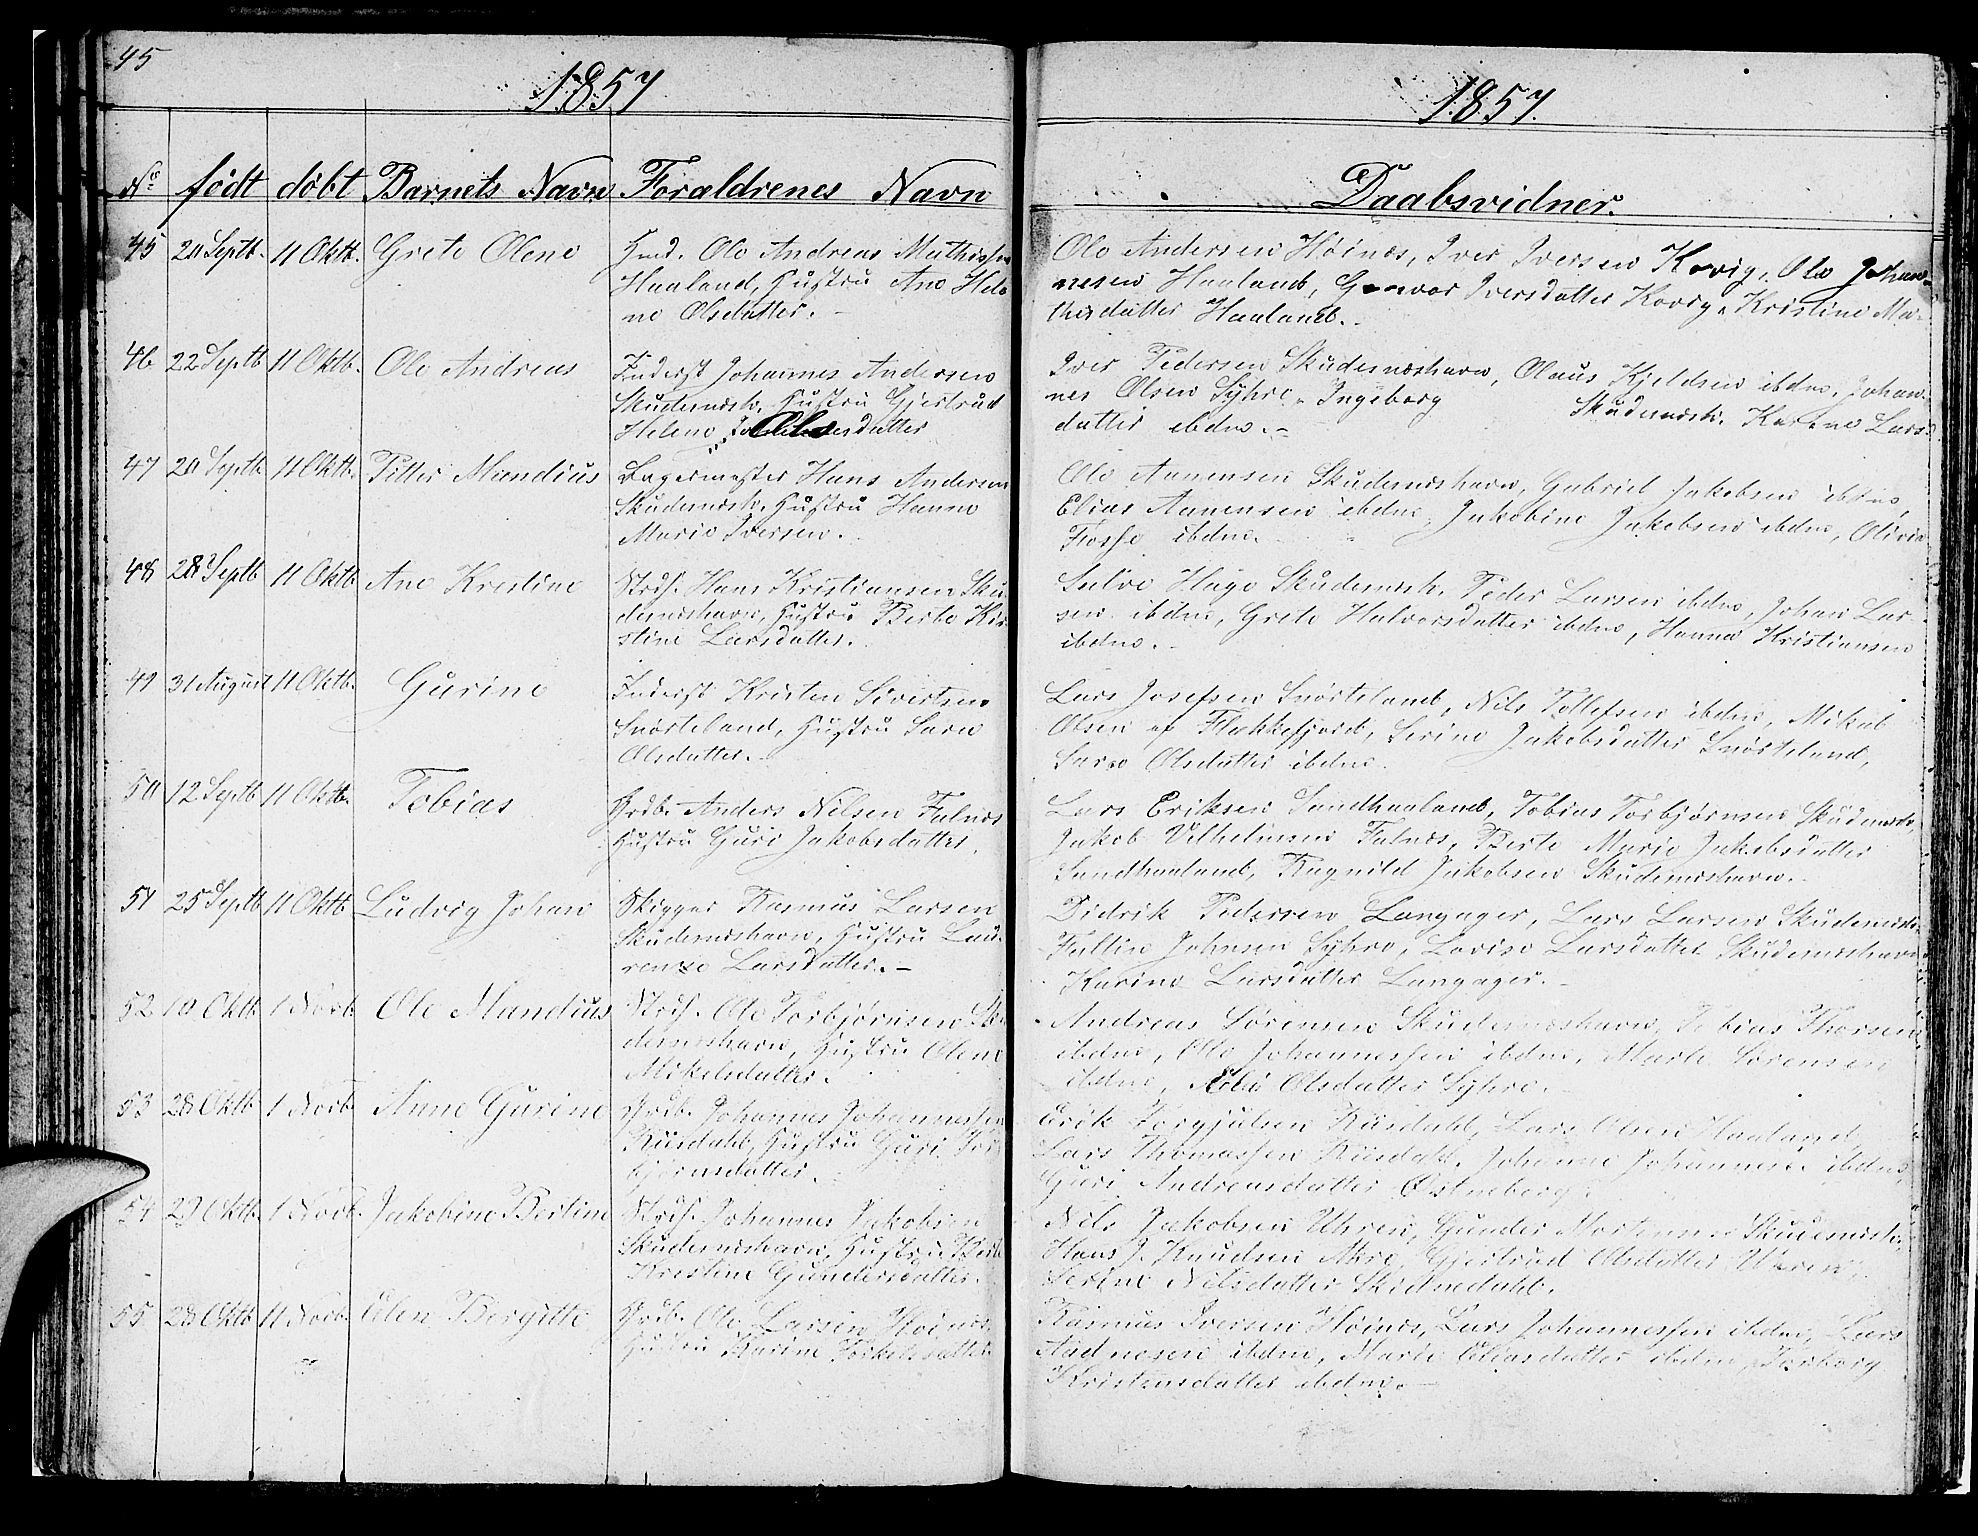 45
1857
1857.
No født døbt Barnets Navn Foraldrenes Navn
Daabsvidner.
45 20 Septb. 11 Oktb. Grete Olene
Gmd. Ole Andreas Mathissen
Haaland, Hustru Ane Hele
ne Olsdatter.
Ole Andersen Høinæs, Iver Iversen Kovig, Ole Johan
nesen Haaland, Gunvor Iversdatter Kovig, Kristine Ma-
thisdatter Haaland.
46 22 Septb 11 Oktb. Ole Andreas
Inderst Johannes Andersen
Skudensh. Hustru Gjertrud
Helene Olsdatter
Iver Pedersen Skudesneshavn, Olaus Kjeldsen ibdm, Johan-
nes Olsen Syhre, Ingeborg Skudensh. Karene Lars-
datter ibdm.
47 20 Septb 11 Oktb. Petter Mandius
Bagermester Hans Andersen
Skudensh. Hustru Hanne
Marie Iversen.
Ole Aanensen Skudeneshavn, Gabriel Jakobsen ibdm,
Elias Aanensen ibdm, Jakobine Jakobsen ibdm, Olivia
Fosse ibdm.
48 28 Septb 11 Oktb Ane Kristine
Strds. Hans Kristiansen Sku-
deneshavn, Hustru Berte Kri-
stine Larsdatter.
Hage Skudensh. Peder Larsen ibdm, Johan Lar-
sen ibdm, Grete Halvorsdatter ibdm, Hanna Kristiansen
ibdm.
49 31 August 11 Oktb. Gurine
Inderst Kristen Sivertsen
Snørteland, Hustru Sara
Olsdatter.
Lars Josefsen Snørteland, Nils Tollefsen ibdm, Mikal
Olsen af Flekkefjord, Serine Jakobsdatter Snørteland,
Sara Olsdatter ibdm.
50 12 Septb 11 Oktb. Tobias
Grdb. Anders Nilsen Falnæs
Hustru Guri Jakobsdatter.
Lars Eriksen Sandhaaland, Tobias Torbjørnsen Skudensh,
Jakob Vilhelmsen Falnæs, Berte Marie Jakobsdatter
Sandhaaland, Ragnild Jakobsen Skudeneshavn.
51 25 Septb 11 Oktb Ludvig Johan
Skipper Rasmus Larsen
Skudeneshavn, Hustru Lau-
rense Larsdatter.
Didrik Pedersen Langager, Lars Larsen Skudensh.
Johnsen Syhre, Lovise Larsdatter Skudeneshavn
Karine Larsdatter Langager.
52 10 Oktb. 1 Novb. Ole Mandius
Strds. Ole Torbjørnsen Sku
deneshavn, Hustru Olene
Mikelsdatter.
Andreas Sørensen Skudeneshavn, Tobias Thorsen
ibdm, Ole Johannessen ibdm, Marte Sørensen
ibdm, Olsdatter Syhre.
53 28 Oktb 1 Novb. Anne Gurine
Grdb. Johannes Johannessen
Riisdahl, Hustru Guri Tor-
bjørnsdatter.
Erik Torgjulsen Riisdahl, Lars Olsen Haaland
Lars Thomassen Riisdahl, Johanne Johannesd. ibdm,
Guri Andreasdatter Østneberg.
54 29 Oktb. 1 Novb. Jakobine Bertine
Strds. Johannes Jakobsen
Skudeneshavn, Hustru Berte
Kristine Gundersdatter.
Nils Jakobsen Uhren, Gunder Mortensen Skudensh.
Hans J. Knudsen Akre, Gjertrud Olsdatter Uhren,
Serine Nilsdatter
55 28 Oktb 11 Novb. Elen Bergitte
Grdb. Ole Larsen Høinæs,
Hustru Karine Torkelsdatter
Rasmus Iversen Høinæs, Lars Johannessen ibdm, Lars
Aadnesen ibdm, Marte Eliasdatter ibdm, Torborg
Kristensdatter ibdm.